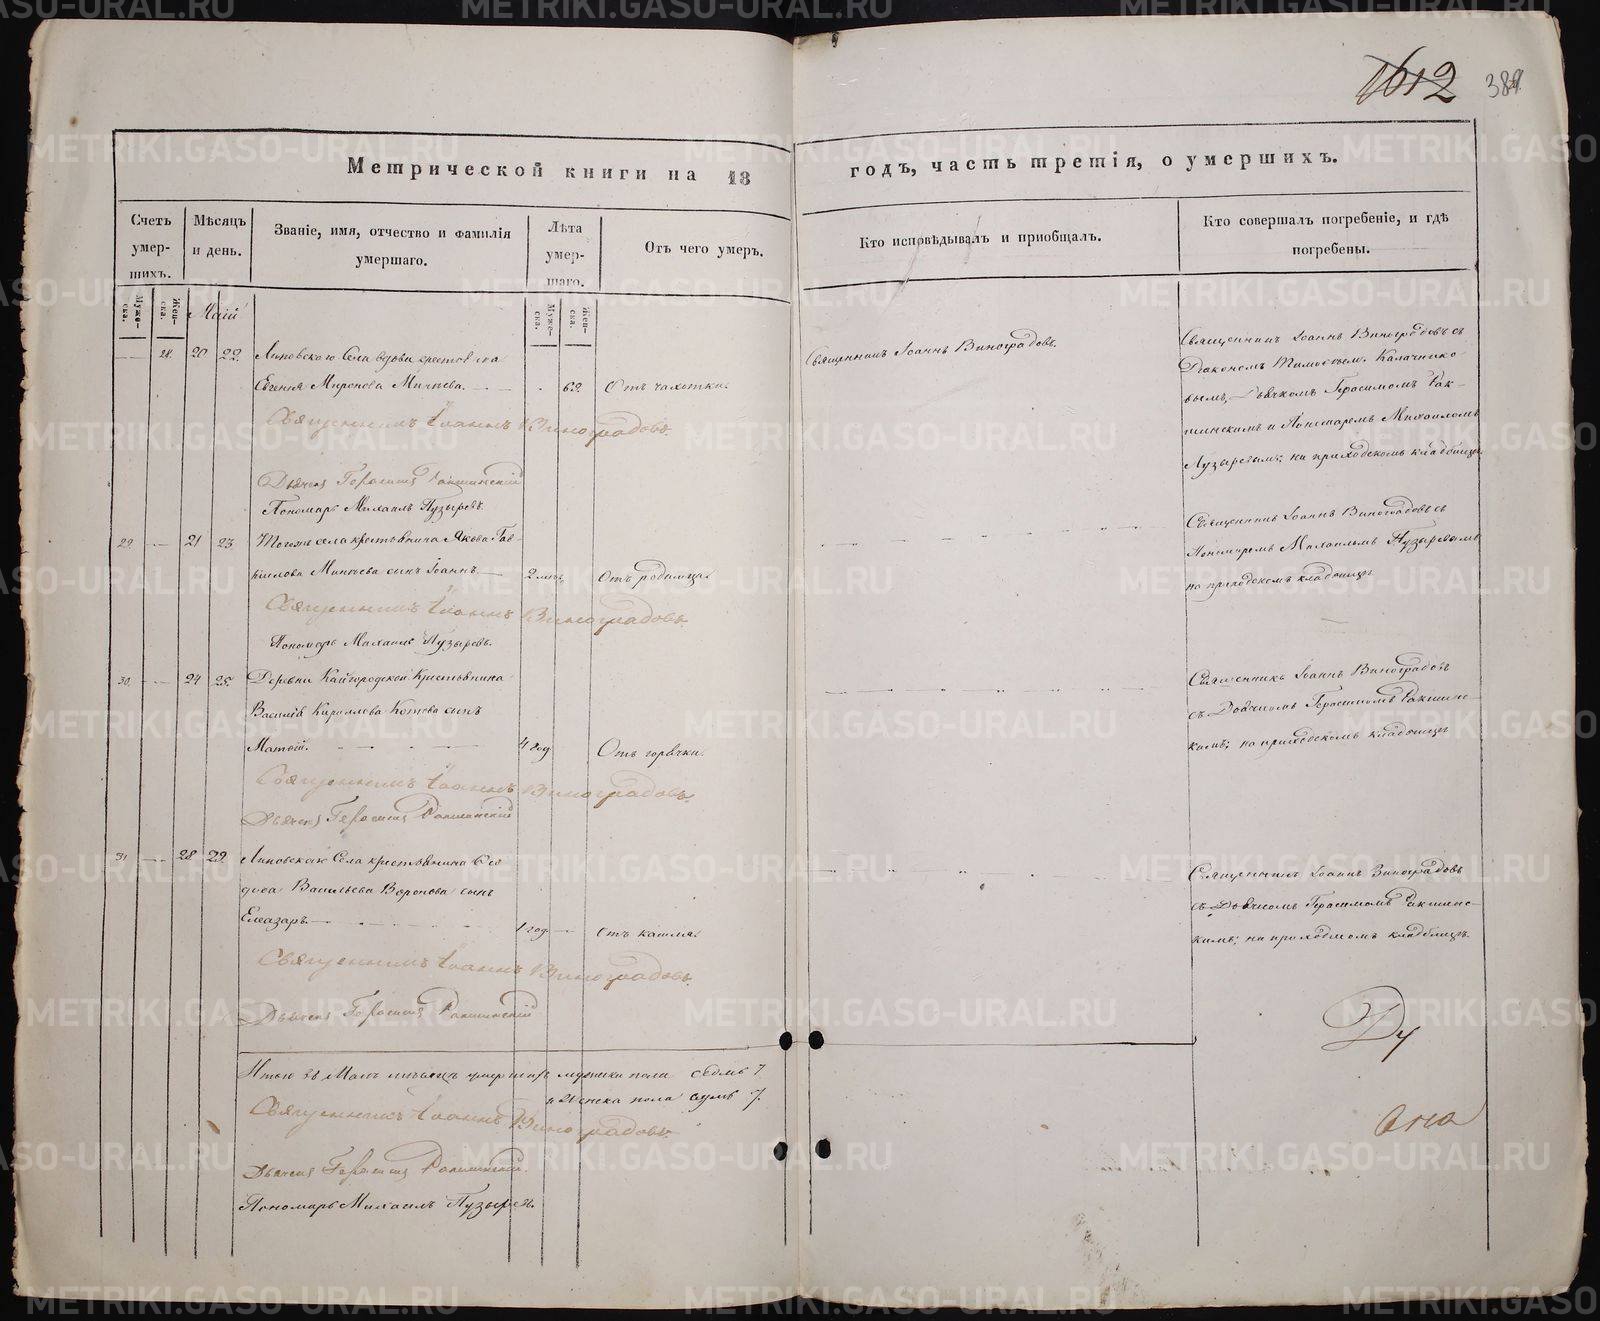 1612 384
Метрической книги на 18 годъ, часть третія, о умершихъ.
Счетъ умер-
шихъ.
Мѣсяцъ
и день.
Званіе, имя, отчество и фамилія
умершаго.
Лѣта
умер-
шаго.
Отъ чего умеръ.
Кто исповѣдывалъ и пріобщалъ.
Кто совершалъ погребеніе, и гдѣ
погребены.
Муже-
ска.
Жен-
ска.
Маій
Муже-
ска.
Жен-
ска.
28. 20 22. Липовскаго Села вдова
Евгенія Миронова 62. Отъ чахотки.
Священникъ Іоаннъ Виноградовъ.
Священникъ Іоаннъ Виноградовъ съ
Діакономъ Калачнико-
вымъ, Дьячкомъ Герасимомъ
и Пономаремъ Михаиломъ
Пузыревымъ; на приходскомъ кладбищѣ
Священникъ Іоаннъ Виноградовъ.
Дьячекъ Герасимъ
Пономарь Михаилъ Пузыревъ.
29. 21 23 Тогожъ села крестьянина Якова Гав-
рилова сынъ Іоаннъ. 2 Отъ родимца.
Священникъ Іоаннъ Виноградовъ съ
Пономаремъ Михаиломъ Пузыревымъ
на приходскомъ кладбищѣ
Священникъ Іоаннъ Виноградовъ.
Пономарь Михаилъ Пузыревъ.
30. 24 25. Деревни Кайгородской Крестьянина
Василія Кирилова Котова сынъ
Матѳій. 4 год Отъ горячки.
Священникъ Іоаннъ Виноградовъ
съ Дьячкомъ Герасимомъ
на приходскомъ кладбищѣ
Священникъ Іоаннъ Виноградовъ.
Дьячекъ Герасимъ
31 28 29 Липовскаго Села крестьянина Ѳео-
дора Васильева Воронова сынъ
Елеазаръ. 1 год. Отъ кашля.
Священникъ Іоаннъ Виноградовъ
съ Дьячкомъ Герасимомъ
на приходскомъ кладбищѣ.
Священникъ Іоаннъ Виноградовъ.
Дьячекъ Герасимъ
Итого въ Маѣ мѣсяцѣ умершихъ мужеска пола седмь 7
и женска пола седмь 7.
Священникъ Іоаннъ Виноградовъ.
Дьячекъ Герасимъ
Пономарь Михаилъ Пузыревъ.
METRIKI.GASO-URAL.RU